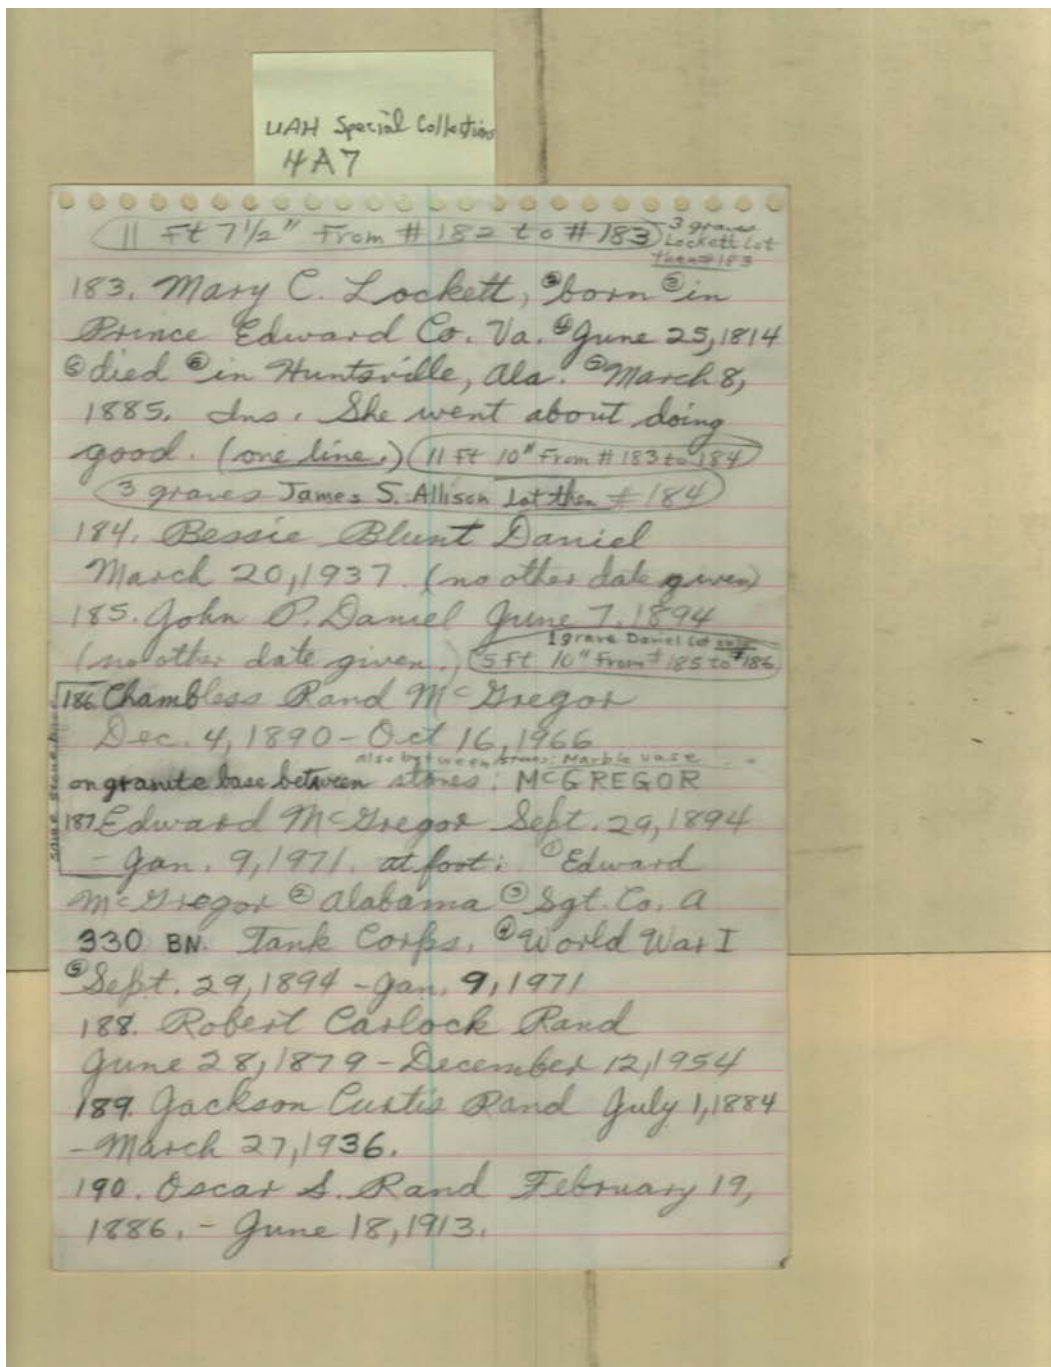 UAH Special Collections
4A7
11 Ft 7 1/2" From # 182 to # 183
3 graves
Lockett Lot
then #183
183. Mary C. Lockett, ② born ③ in
Prince Edward Co. Va. ④ June 25, 1814
⑤ died ⑥ in Huntsville, Ala. March 8,
1885. Ins. She went about doing
good. (one line.) 11 Ft 10" From # 183 to 184
3 graves James S. Allison Lot then # 184
184. Bessie Blunt Daniel
March 20, 1937. (no other date given)
185. John P. Daniel June 7, 1894
1 grave Daniel Lot
(no other date given.) 5 Ft 10" From # 185 to #186
186. Chambless Rand McGregor
Dec. 4, 1890 - Oct 16, 1966
also between stones: Marble vase
on granite base between stones: McGREGOR
same stone base
187. Edward McGregor Sept. 29, 1894
- Jan. 9, 1971. at foot: ① Edward
McGregor ② Alabama ③ Sgt. Co. A
330 BN. Tank Corps. ④ World War I
⑤ Sept. 29, 1894 - Jan. 9, 1971
188. Robert Carlock Rand
June 28, 1879 - December 12, 1954
189. Jackson Curtis Rand July 1, 1884
- March 27, 1936.
190. Oscar S. Rand February 19,
1886. - June 18, 1913.